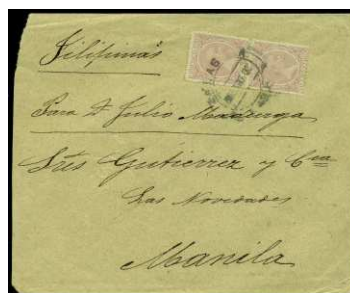 Filipinas
Para D Julio
Sres Gutierrez y Cia
Las Novedades
Manila